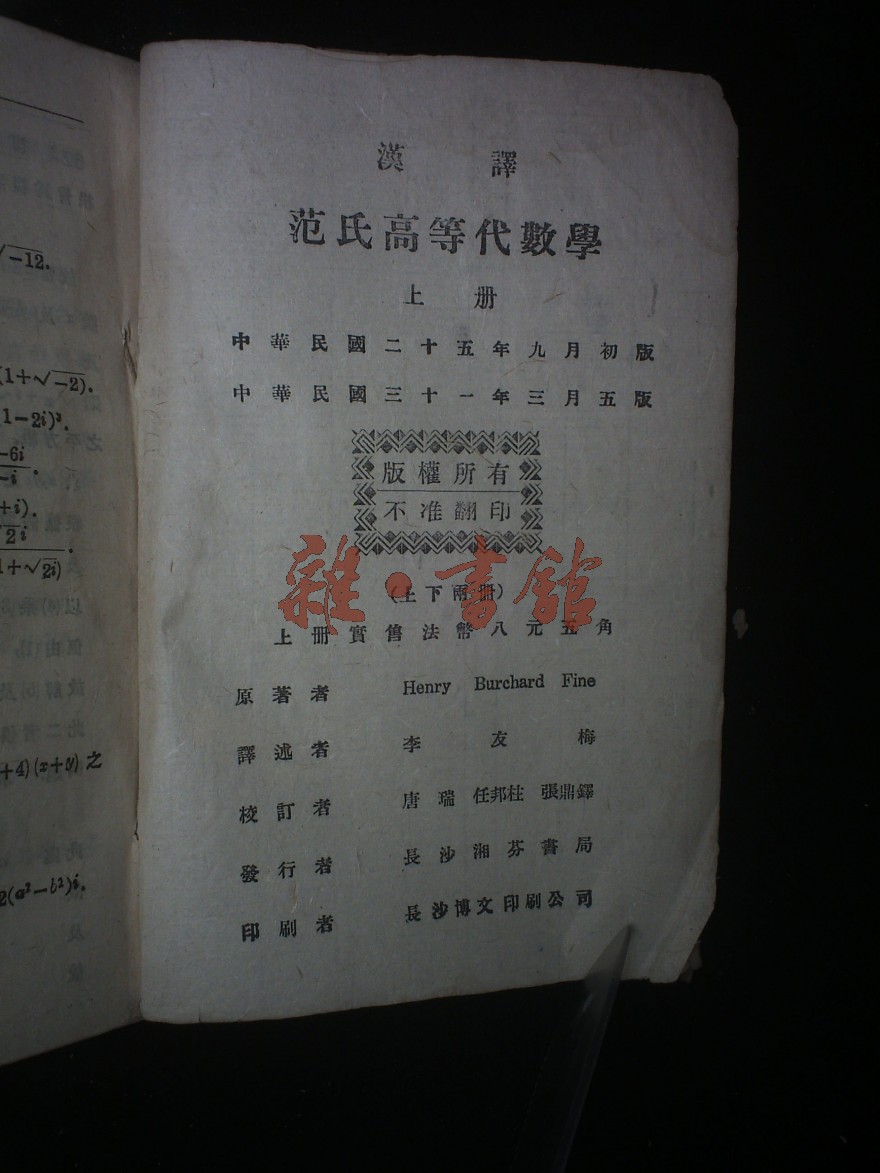 √-12.
(1+√-2).
(1-2i)³.
-6i
-i
+i).
√2i
1+√2i)
+4)(x+y)之
2(a²-b²)i.
漢 譯
范氏高等代數學
上 册
中華民國二十五年九月初版
中華民國三十一年三月五版
版權所有
不准翻印
雜·書館
(上下兩册)
上册實售法幣八元五角
原著者 Henry Burchard Fine
譯述者 李友梅
校訂者 唐瑞 任邦柱 張鼎鐸
發行者 長沙湘芬書局
印刷者 長沙博文印刷公司